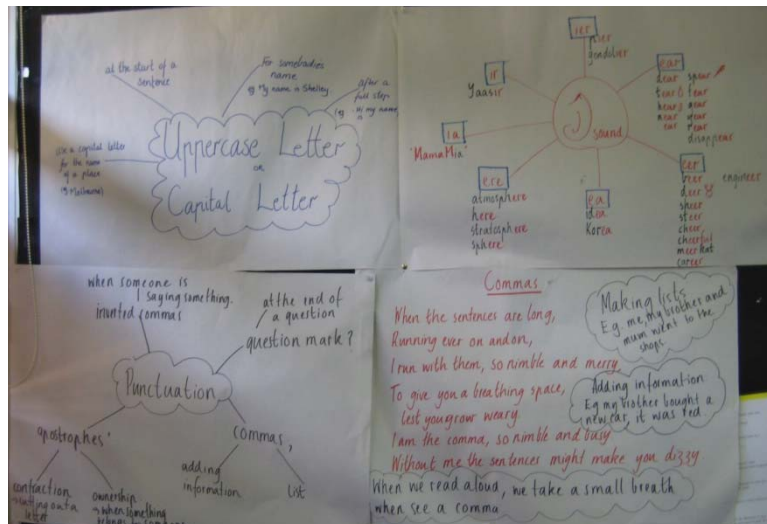 at the start of a
sentence
For somebodies
name
eg My name is Shelley
after a
full stop
use a capital letter
for the name
of a place
eg Melbourne
Uppercase Letter
or
Capital Letter
ier
pier
gondolier
ir
Yaasir
ia
"MamaMia"
ere
atmosphere
here
stratosphere
sphere
ea
idea
Korea
sound
ear
dear spear
tear fear
hear gear
near year
ear rear
disappear
eer
beer engineer
deer
sheer
steer
cheer
cheerful
meerkat
career
when someone is
saying something.
inverted commas
at the end of
a question
question mark?
Punctuation
apostrophes'
contraction
letter
ownership
when something
commas,
adding
information
list
Commas
When the sentences are long,
Running ever on and on,
I run with them, so nimble and merry
To give you a breathing space,
lest you grow weary
I am the comma, so nimble and busy
Without me the sentences might make you dizzy
Making lists
Eg me, my brother and
mum went to the
shops.
Adding information.
Eg my brother bought a
new car, it was red.
When we read aloud, we take a small breath
when see a comma